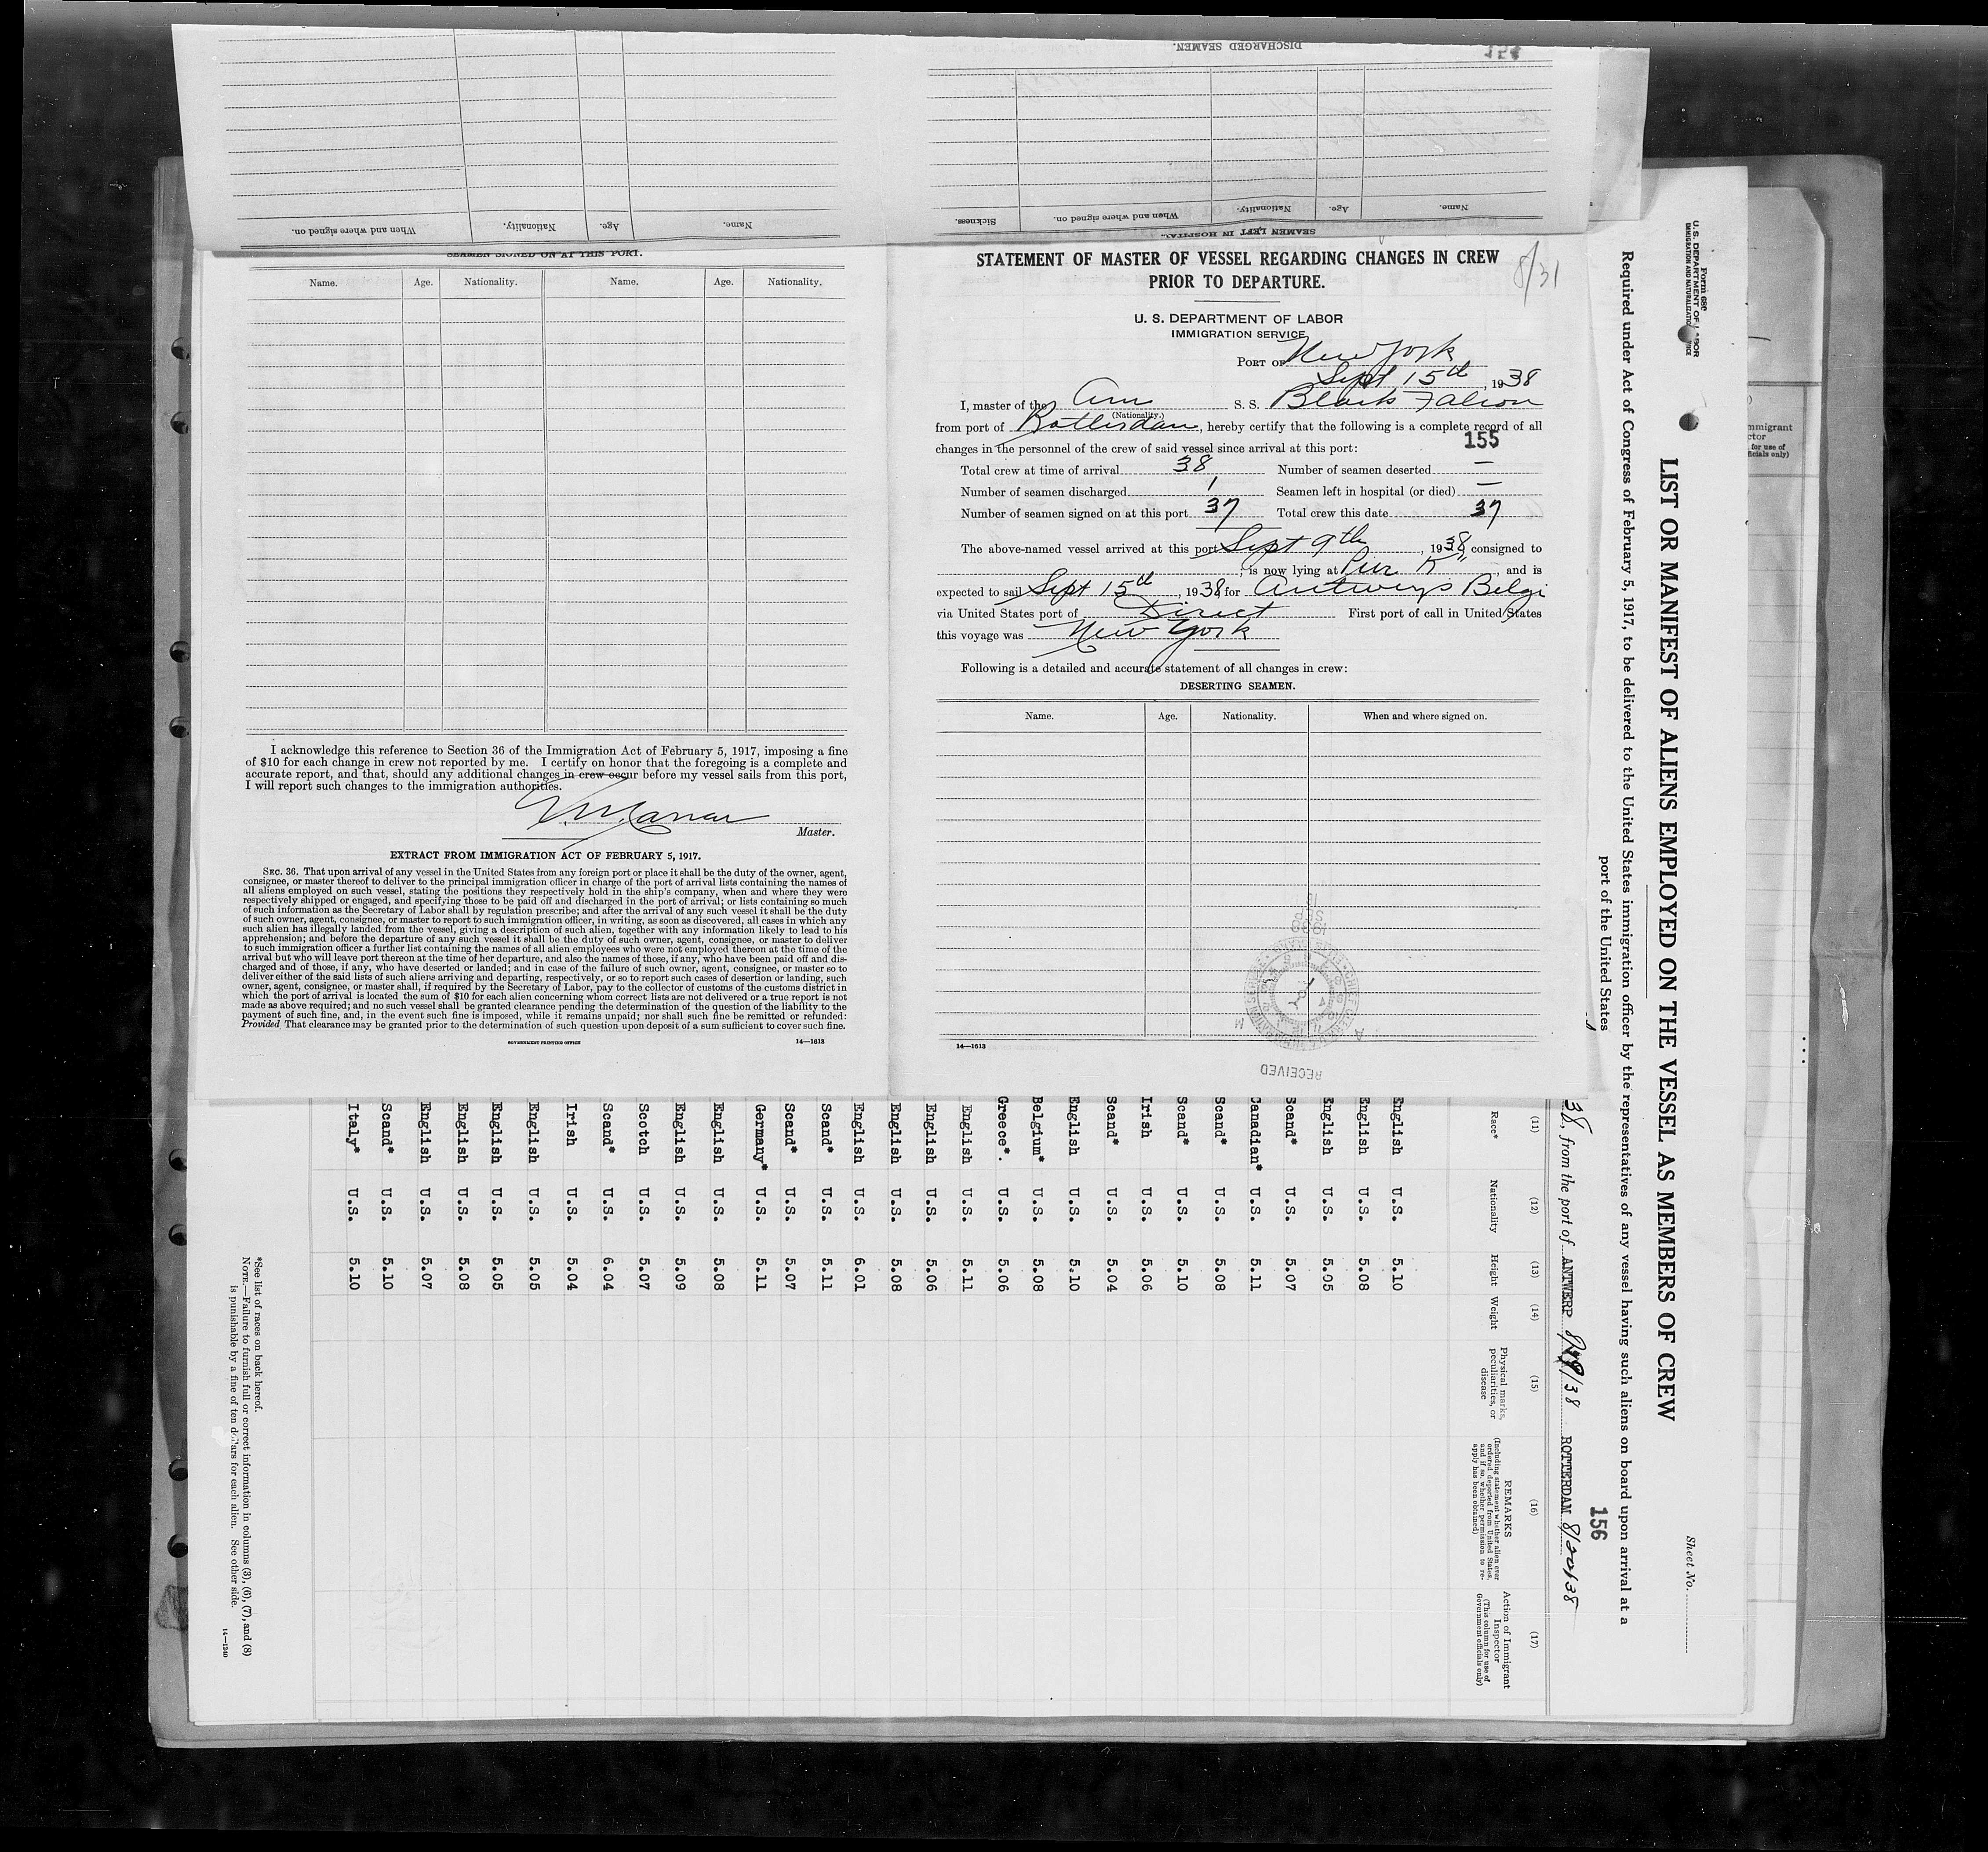 DISCHARGED SEAMEN.
Name. Age. Nationality. When and where signed on.
Name. Age. Nationality. When and where signed on. Sickness.
SEAMEN LEFT IN HOSPITAL.
SEAMEN SIGNED ON AT THIS PORT.
Name. Age. Nationality. Name. Age. Nationality.
I acknowledge this reference to Section 36 of the Immigration Act of February 5, 1917, imposing a fine
of $10 for each change in crew not reported by me. I certify on honor that the foregoing is a complete and
accurate report, and that, should any additional changes in crew occur before my vessel sails from this port,
I will report such changes to the immigration authorities.
Master.
EXTRACT FROM IMMIGRATION ACT OF FEBRUARY 5, 1917.
SEC. 36. That upon arrival of any vessel in the United States from any foreign port or place it shall be the duty of the owner, agent,
consignee, or master thereof to deliver to the principal immigration officer in charge of the port of arrival lists containing the names of
all aliens employed on such vessel, stating the positions they respectively hold in the ship's company, when and where they were
respectively shipped or engaged, and specifying those to be paid off and discharged in the port of arrival; or lists containing so much
of such information as the Secretary of Labor shall by regulation prescribe; and after the arrival of any such vessel it shall be the duty
of such owner, agent, consignee, or master to report to such immigration officer, in writing, as soon as discovered, all cases in which any
such alien has illegally landed from the vessel, giving a description of such alien, together with any information likely to lead to his
apprehension; and before the departure of any such vessel it shall be the duty of such owner, agent, consignee, or master to deliver
to such immigration officer a further list containing the names of all alien employees who were not employed thereon at the time of the
arrival but who will leave port thereon at the time of her departure, and also the names of those, if any, who have been paid off and dis-
charged and of those, if any, who have deserted or landed; and in case of the failure of such owner, agent, consignee, or master so to
deliver either of the said lists of such aliens arriving and departing, respectively, or so to report such cases of desertion or landing, such
owner, agent, consignee, or master shall, if required by the Secretary of Labor, pay to the collector of customs of the customs district in
which the port of arrival is located the sum of $10 for each alien concerning whom correct lists are not delivered or a true report is not
made as above required; and no such vessel shall be granted clearance pending the determination of the question of the liability to the
payment of such fine, and, in the event such fine is imposed, while it remains unpaid; nor shall such fine be remitted or refunded:
Provided That clearance may be granted prior to the determination of such question upon deposit of a sum sufficient to cover such fine.
GOVERNMENT PRINTING OFFICE 14—1613
STATEMENT OF MASTER OF VESSEL REGARDING CHANGES IN CREW
PRIOR TO DEPARTURE.
8/31
U. S. DEPARTMENT OF LABOR
IMMIGRATION SERVICE
PORT OF New York
Sept 15th, 1938
I, master of the Am S. S. Black Falcon
(Nationality.)
from port of Rotterdam, hereby certify that the following is a complete record of all
155
changes in the personnel of the crew of said vessel since arrival at this port:
Total crew at time of arrival 38 Number of seamen deserted —
Number of seamen discharged 1 Seamen left in hospital (or died) —
Number of seamen signed on at this port 37 Total crew this date 37
The above-named vessel arrived at this port Sept 9th, 1938, consigned to
, is now lying at Pier K, and is
expected to sail Sept 15th, 1938 for Antwerp Belgi
via United States port of Direct First port of call in United States
this voyage was New York
Following is a detailed and accurate statement of all changes in crew:
DESERTING SEAMEN.
Name. Age. Nationality. When and where signed on.
14—1613
RECEIVED
Form 680
U. S. DEPARTMENT OF LABOR
IMMIGRATION AND NATURALIZATION SERVICE
Sheet No.
LIST OR MANIFEST OF ALIENS EMPLOYED ON THE VESSEL AS MEMBERS OF CREW
Required under Act of Congress of February 5, 1917, to be delivered to the United States immigration officer by the representatives of any vessel having such aliens on board upon arrival at a
port of the United States
156
38, from the port of ANTWERP 8/29/38 ROTTERDAM 8/30/38
(11) (12) (13) (14) (15) (16) (17)
Race* Nationality Height Weight Physical marks, peculiarities, or disease REMARKS (Including statement whether alien ever ordered deported from United States, and if so, whether permission to reapply has been obtained) Action of Immigrant Inspector (This column for use of Government officials only)
English U.S. 5.10
English U.S. 5.08
English U.S. 5.05
Scand* U.S. 5.07
Canadian* U.S. 5.11
Scand* U.S. 5.08
Scand* U.S. 5.10
Irish U.S. 5.06
Scand* U.S. 5.04
English U.S. 5.10
Belgium* U.S. 5.08
Greece*. U.S. 5.06
English U.S. 5.11
English U.S. 5.06
English U.S. 5.08
English U.S. 6.01
Scand* U.S. 5.11
Scand* U.S. 5.07
Germany* U.S. 5.11
English U.S. 5.08
English U.S. 5.09
Scotch U.S. 5.07
Scand* U.S. 6.04
Irish U.S. 5.04
English U.S. 5.05
English U.S. 5.05
English U.S. 5.08
English U.S. 5.07
Scand* U.S. 5.10
Italy* U.S. 5.10
*See list of races on back hereof.
NOTE.—Failure to furnish full or correct information in columns (3), (6), (7), and (8)
is punishable by a fine of ten dollars for each alien. See other side.
14—1240